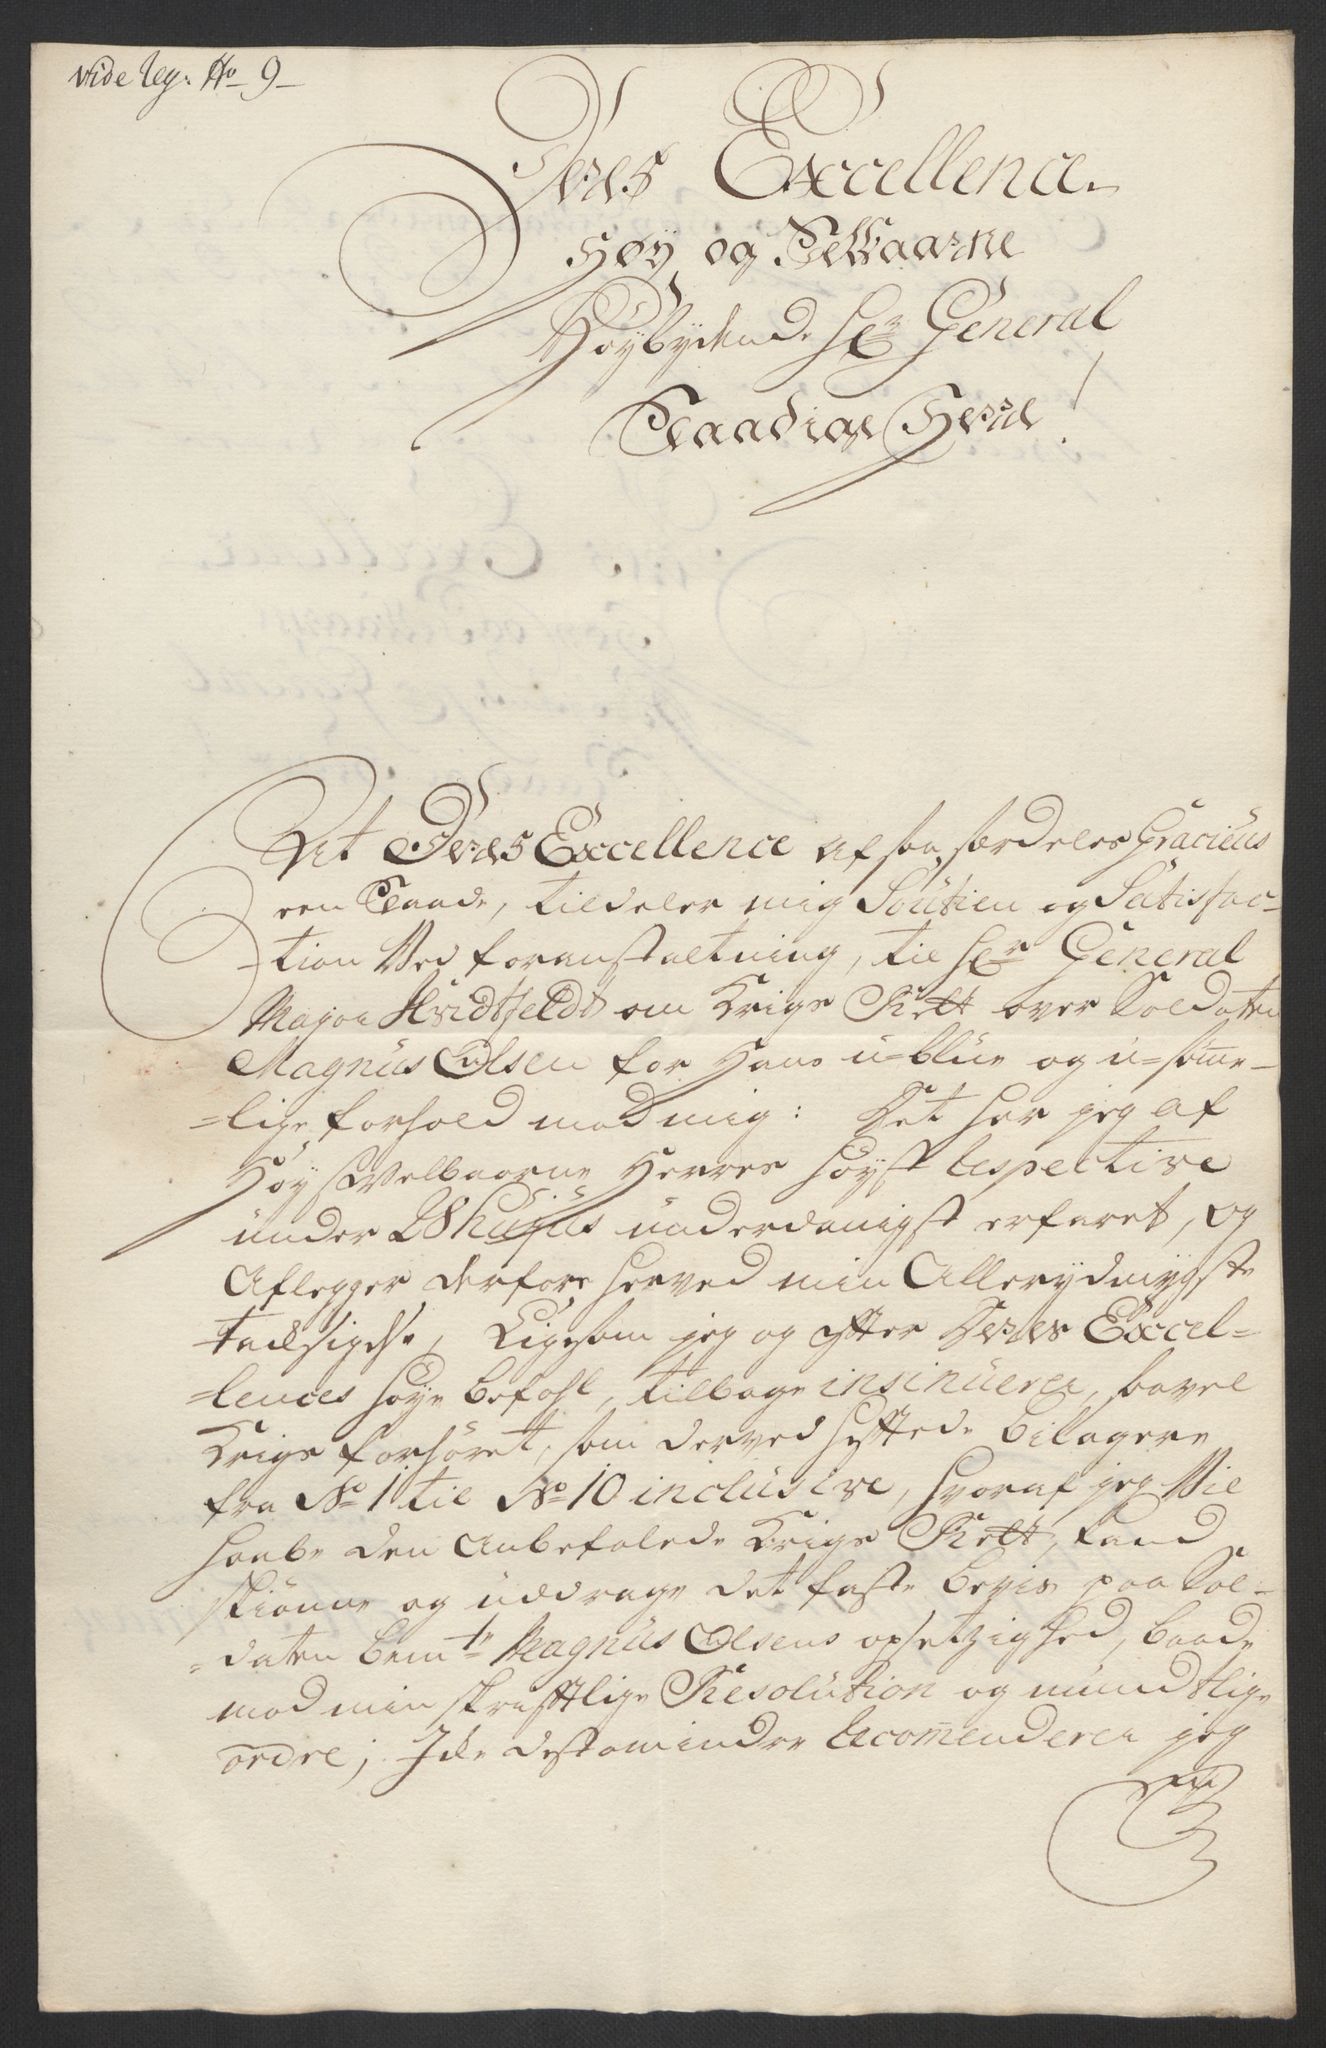 vide Reg: No 9
Deres Excellence
Høy og Velbaarne
Høybydende Hr General
Naadige Herre!
At Deres Excellence af saa særdeles Gracieus
een Naade, tildeler mig Soutien og Satisfac-
-tion Ved foranstaltning, til Hr General
Major Hvidtfeldt om Krigs Rett over Soldaten
Magnus Olsen for Hans u-blue og u-søme-
-lige forhold mod mig: Det har jeg af
Høy Welbaarne Herres høyst respective
under 28 hujus underdanigst erfaret, og
Aflegger derfore herved min Allerydmygste
Taksigelse, Ligesom jeg og efter Deres Excel-
-lences høye befahl, tilbage insinuerer, saavel
Krigs forhöret, som derved hefftede bilagere
fra No 1 til No 10 inclusive, hvoraf jeg Vil
haabe den Anbefalede Krigs Rett, kand
skiønne og uddrage det faste beviis paa Sol-
-daten bemte Magnus Olsens opsetzighed, baade
mod min skrifftlige Resolution og mundtlige
ordre; Icke destomindre recomenderer jeg